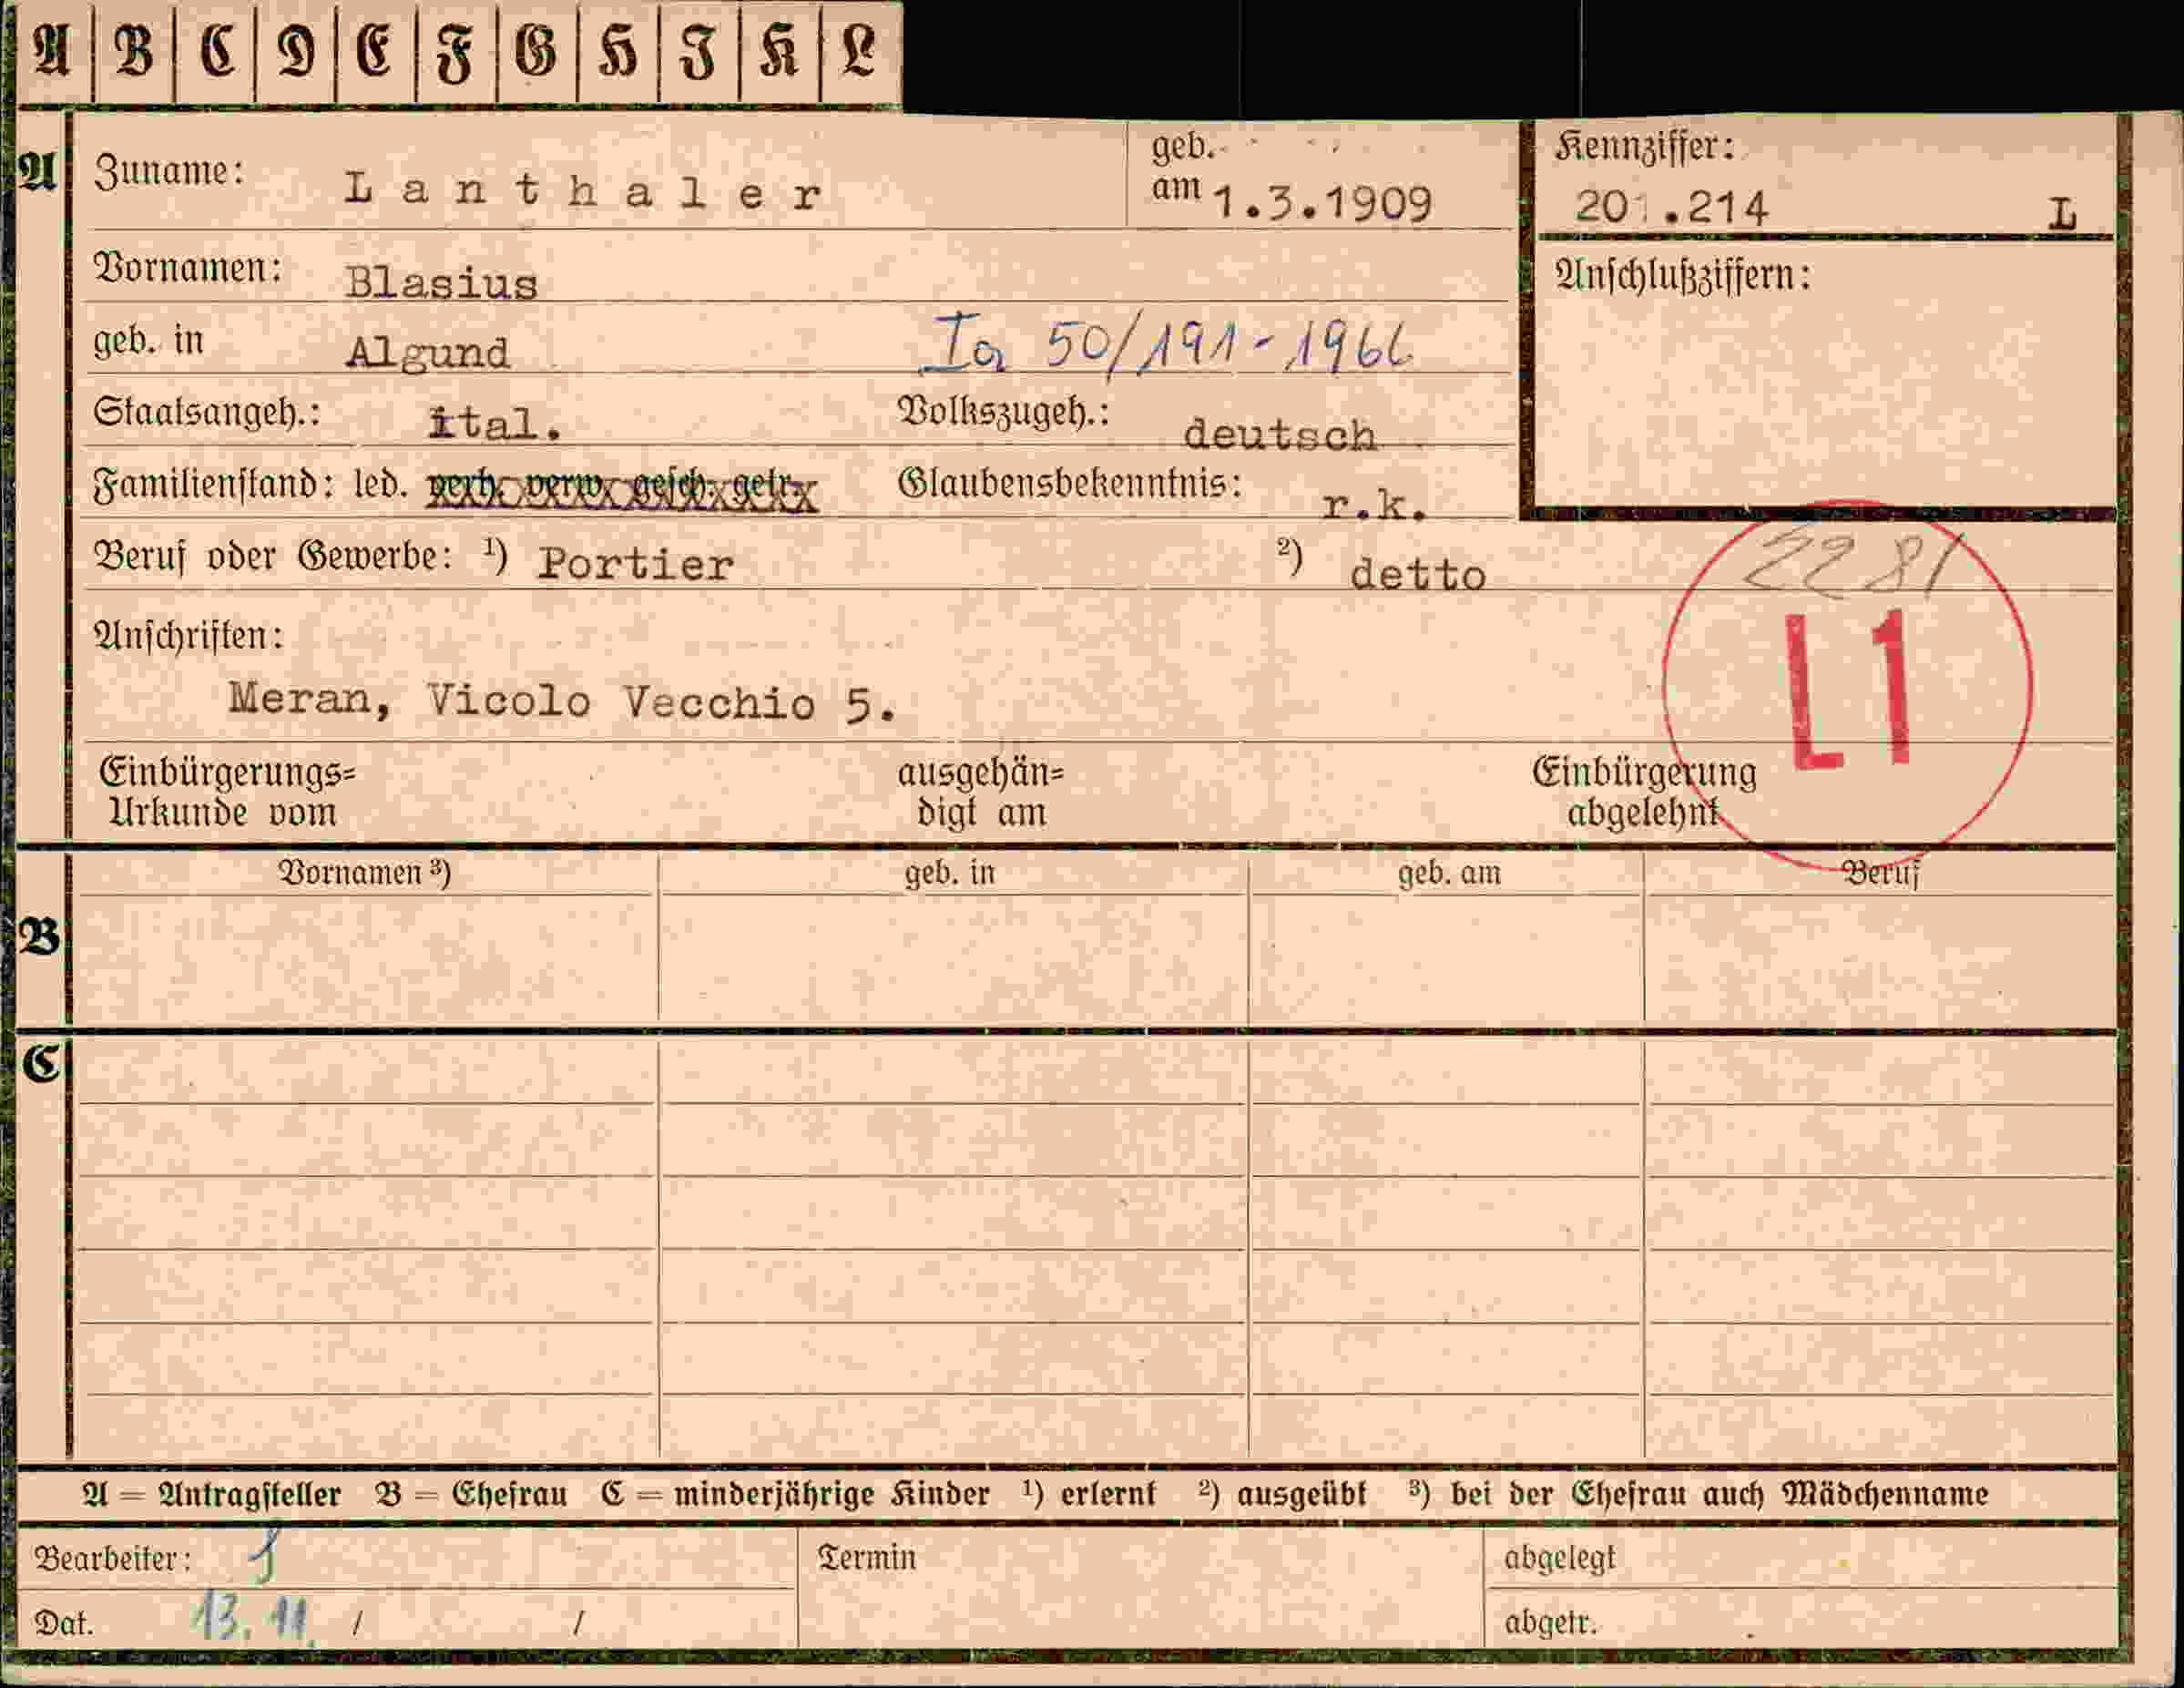 A B C D E F G H I K L
A Zuname: Lanthaler geb. am 1.3.1909 Kennziffer: 201.214 L
Vornamen: Blasius Anschlußziffern:
geb. in Algund Ia 50/191-1966
Staatsangeh.: ital. Volkszugeh.: deutsch
Familienstand: led. verh. verw. gesch. getr. Glaubensbekenntnis: r.k.
Beruf oder Gewerbe: ¹) Portier ²) detto 2281
Anschriften: L1
Meran, Vicolo Vecchio 5.
Einbürgerungs= ausgehän= Einbürgerung
Urkunde vom digt am abgelehnt
Vornamen ³) geb. in geb. am Beruf
B
C
A = Antragsteller B = Ehefrau C = minderjährige Kinder ¹) erlernt ²) ausgeübt ³) bei der Ehefrau auch Mädchenname
Bearbeiter: Termin abgelegt
Dat. 13.11. / / abgetr.